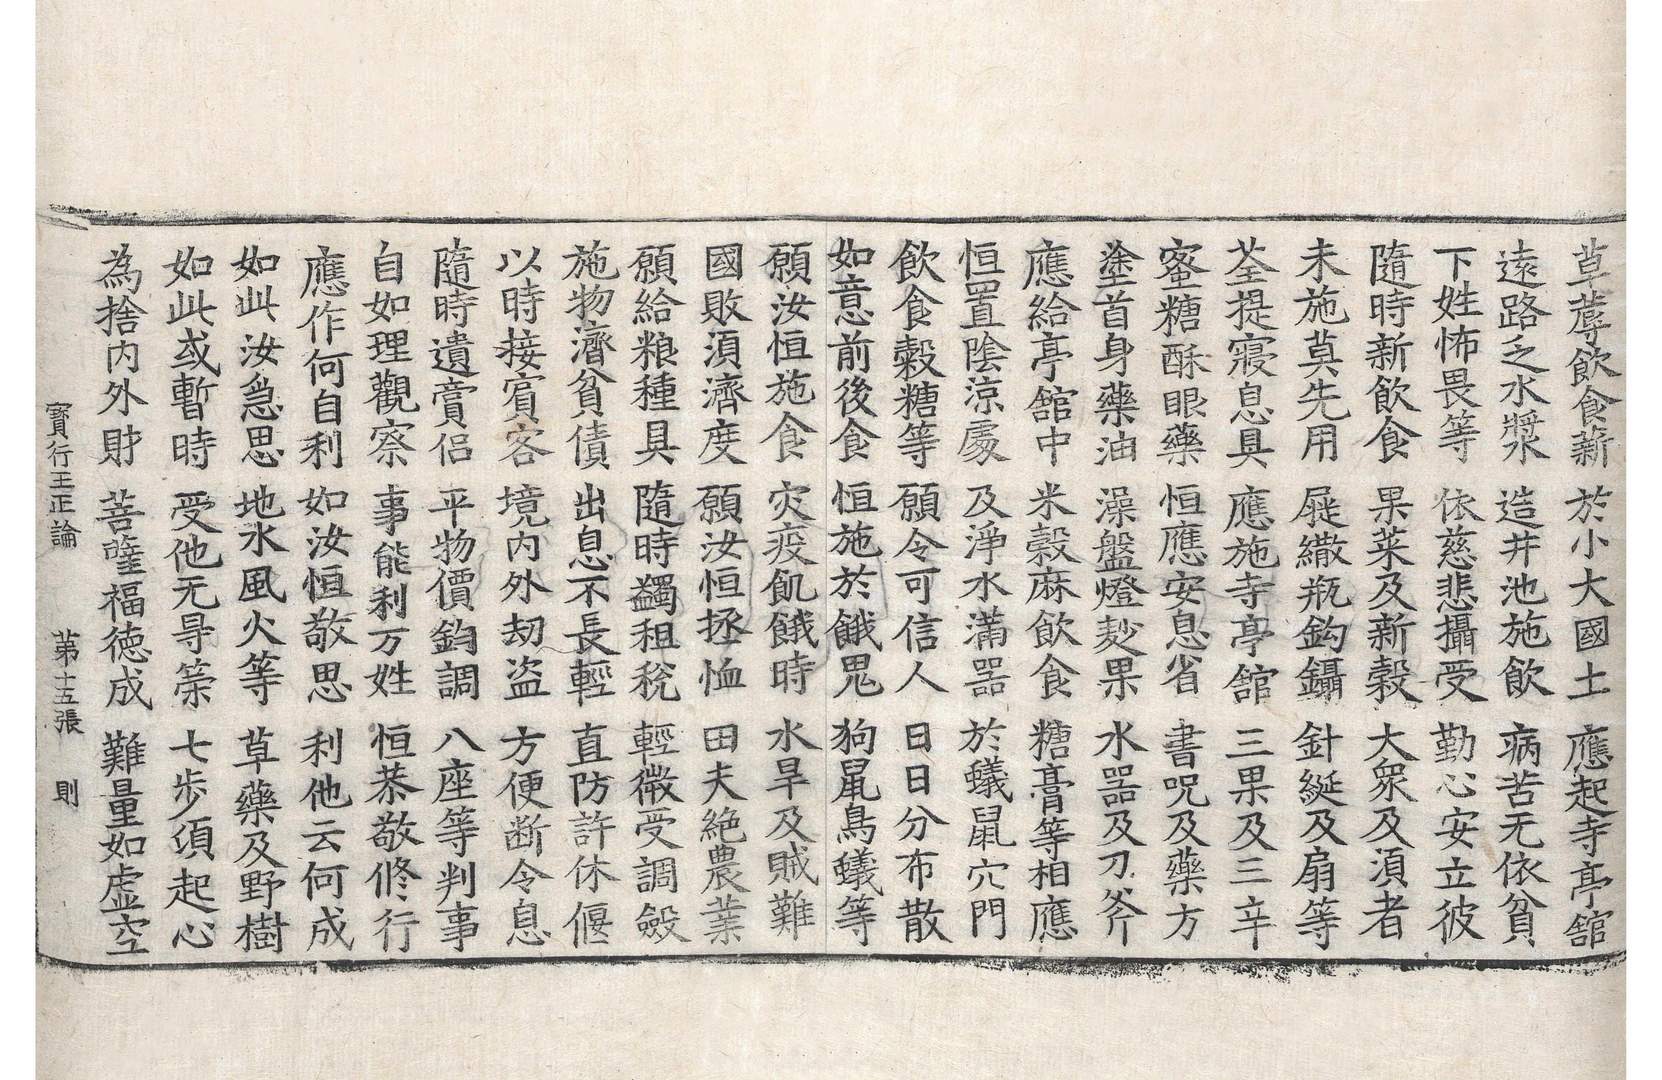 草蓐飲食薪 於小大國土 應起寺亭舘
遠路乏水漿 造井池施飲 病苦无依貧
下姓怖畏等 依慈悲攝受 勤心安立彼
隨時新飲食 果菜及新穀 大衆及湏者
未施莫先用 屣繖瓶鈎鑷 針綖及扇等
荃提寢息具 應施寺亭舘 三果及三辛
蜜糖酥眼藥 恒應安息省 書呪及藥方
塗首身藥油 澡盤燈麨果 水器及刀斧
應給亭舘中 米穀麻飲食 糖膏等相應
恒置陰涼處 及淨水滿器 於蟻鼠穴門
飲食穀糖等 願令可信人 日日分布散
如意前後食 恒施於餓鬼 狗鼠鳥蟻等
願汝恒施食 灾疫飢餓時 水旱及賊難
國敗湏濟度 願汝恒拯恤 田夫絶農業
願給粮種具 隨時蠲租稅 輕微受調斂
施物濟貧債 出息不長輕 直防許休偃
以時接賓客 境内外劫盜 方便断令息
隨時遣賣侶 平物價鈞調 八座等判事
自如理觀察 事能利万姓 恒恭敬修行
應作何自利 如汝恒敬思 利他云何成
如此汝急思 地水風火等 草藥及野樹
如此或暫時 受他无㝵策 七步須起心
為捨内外財 菩薩福德成 難量如虛空
寶行王正論 第十五張 則